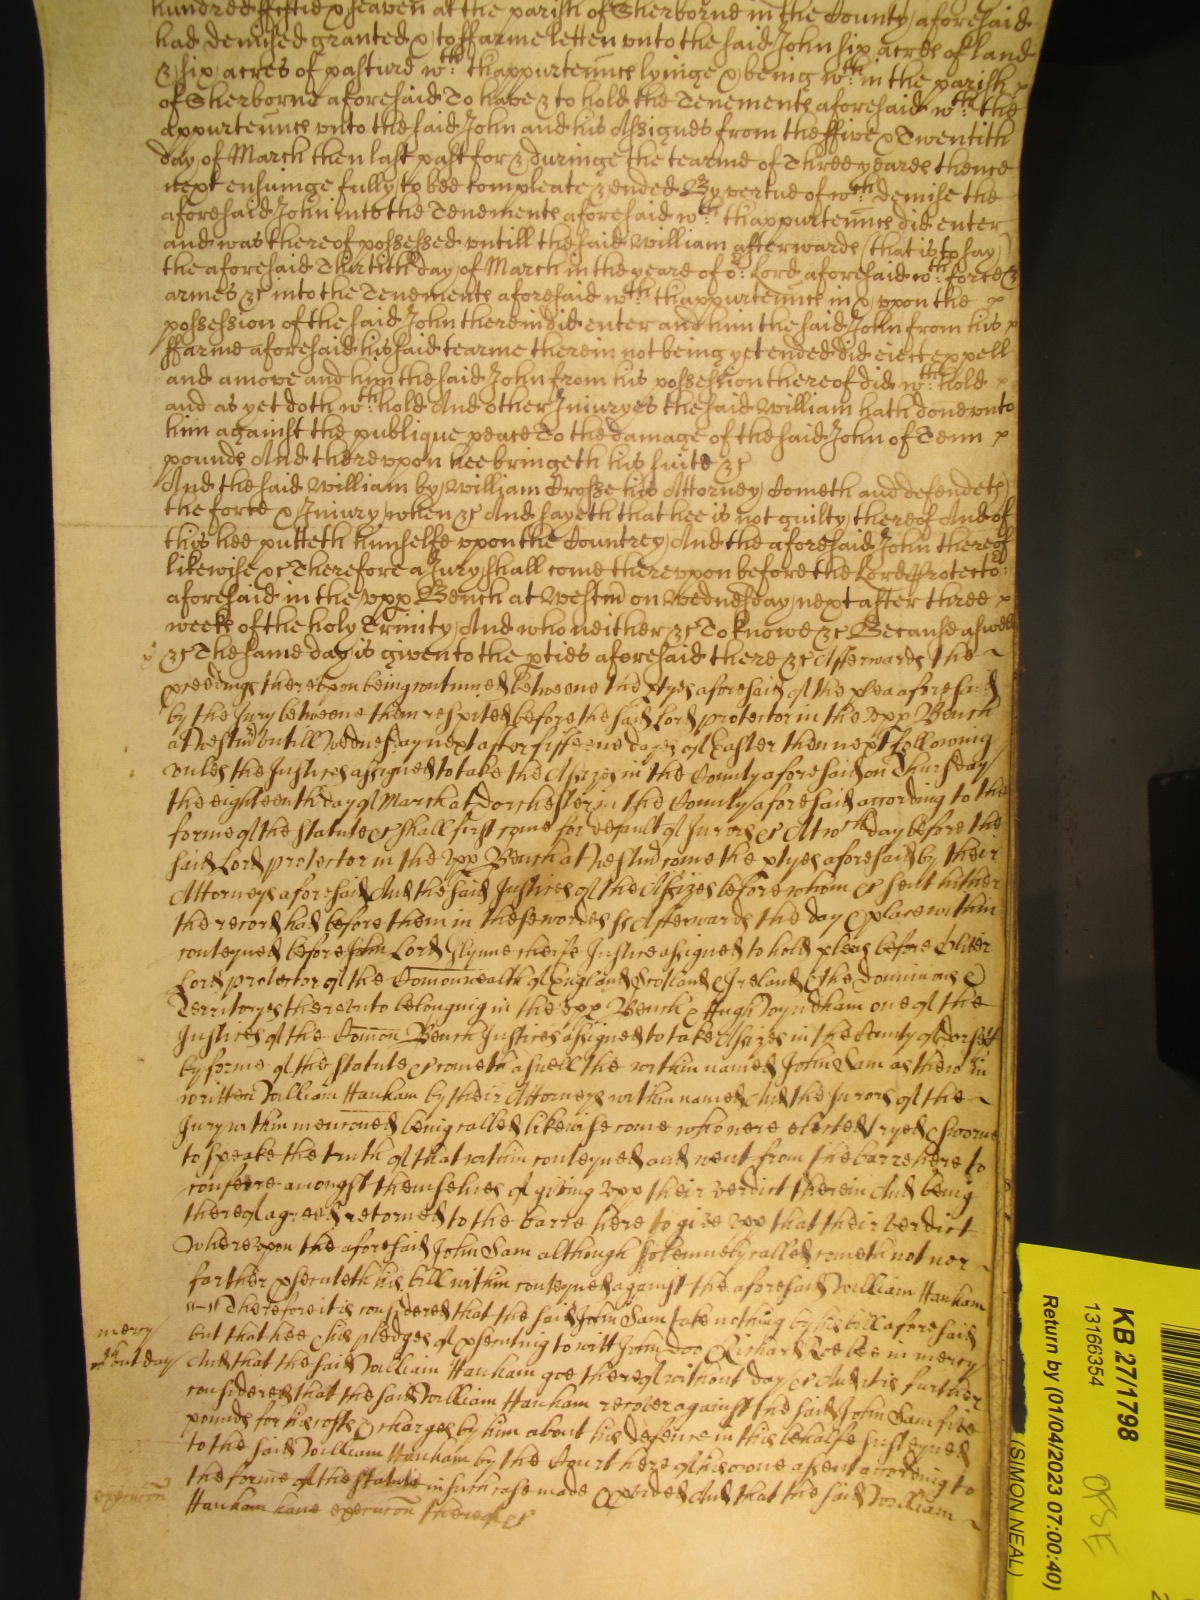 hundred ffiftie & seaven at the parish of Sherborne in the County aforesaid
had demised granted & to ffarme letten unto the said John six acres of land
& six acres of pasture wth. thappurtenncs lyinge & being wth.in the parish
of Sherborne aforesaid To have & to hold the Tenements aforesaid wth. the
appurtenncs unto the said John and his Assignes from the ffive & Twentith
day of March then last past for & duringe the tearme of Three yeares thence
next ensuinge fully to bee compleate & ended By vertue of wch. demise the
aforesaid John into the Tenements aforesaid wth. thappurtenncs did enter
and was thereof possessed untill the said William afterwards (that is to say)
the aforesaid Thirtith day of March in the yeare of or. Lord aforesaid wth. force &
armes &c into the Tenements aforesaid wth. thappurtenncs in & uppon the
possession of the said John therein did enter and him the said John from his
ffarme aforesaid his said tearme therein not being yet ended did eiect expell
and amove and him the said John from his possession thereof did wth.hold
and as yet doth wth.hold And other Iniuryes the said William hath done unto
him against the publique peace To the damage of the said John of Tenn
pounds And thereupon hee bringeth his suite &c
And the said William by William Crosse his Attorney Cometh and defendeth
the force & Iniury when &c And sayeth that hee is not guilty thereof And of
this hee putteth himselfe uppon the Countrey And the aforesaid John thereof
likewise &c Therefore a Jury shall come thereuppon before the Lord Protector
aforesaid in the upp Bench at Westm on Wednesday next after three
weeks of the holy Trinity And who neither &c To knowe &c Because aswell
&c The same day is given to the pties aforesaid there &c Afterwards the
pceedings thereupon being continued betweene the ptyes aforesaid of the plea aforesaid
by the Jury betweene them respited before the said Lord protector in the upp Bench
at Westm untill Wednesday next after fifteene dayes of Easter then next following
unles the Justices assigned to take the Assizes in the County aforesaid on Thursday
the eighteenth day of March at Dorchester in the County aforesaid according to the
forme of the statute &c shall first come for default of Jurors &c At wch day before the
said Lord protector in the upp Bench at Westm come the ptyes aforesaid by their
Attorneys aforesaid And the said Justices of the Assizes before whom &c sent hither
the record had before them in these wordes sc Afterwards the day & place within
conteyned before Lord Glynne cheife Justice assigned to hold pleas before Oliver
Lord protector of the Comonwealth of England Scotland & Ireland & the dominions &
Territoryes thereunto belonging in the upp Bench & Hugh Wyndham one of the
Justices of the Comon Bench Justices assigned to take Assizes in the County of Dorset
by forme of the statute &c cometh aswell the within named John Sam as the within
written William Hanham by their Attorneys within named And the Jurors of the
Jury within mencioned being called likewise come who were elected tryed & sworne
to speake the truth of that within conteyned and went from the barre here to
conferre amongst themselves of giving upp their verdict therein And being
thereof agreed returned to the barre here to give upp that their verdict
Whereupon the aforesaid John Sam although solemnely called cometh not nor
farther psecuteth his bill within conteyned against the aforesaid William Hanham
Therefore it is considered that the said John Sam take nothing by his bill aforesaid
mercy
but that hee & his pledges of psecuting to witt John Doo & Richard Roe bee in mercy
without day
And that the said William Hanham goe thereof without day &c And it is further
considered that the said William Hanham recover against the said John Sam five
pounds for his costs & charges by him about his defence in this behalfe susteyned
to the said William Hanham by the Court here of his owne assent according to
the forme of the statute in such case made & pvided And that the said William
execucon
Hanham have execucon thereof &c
KB 27/1798
13166354
Return by (01/04/2023 07:00:40)
(SIMON NEAL)